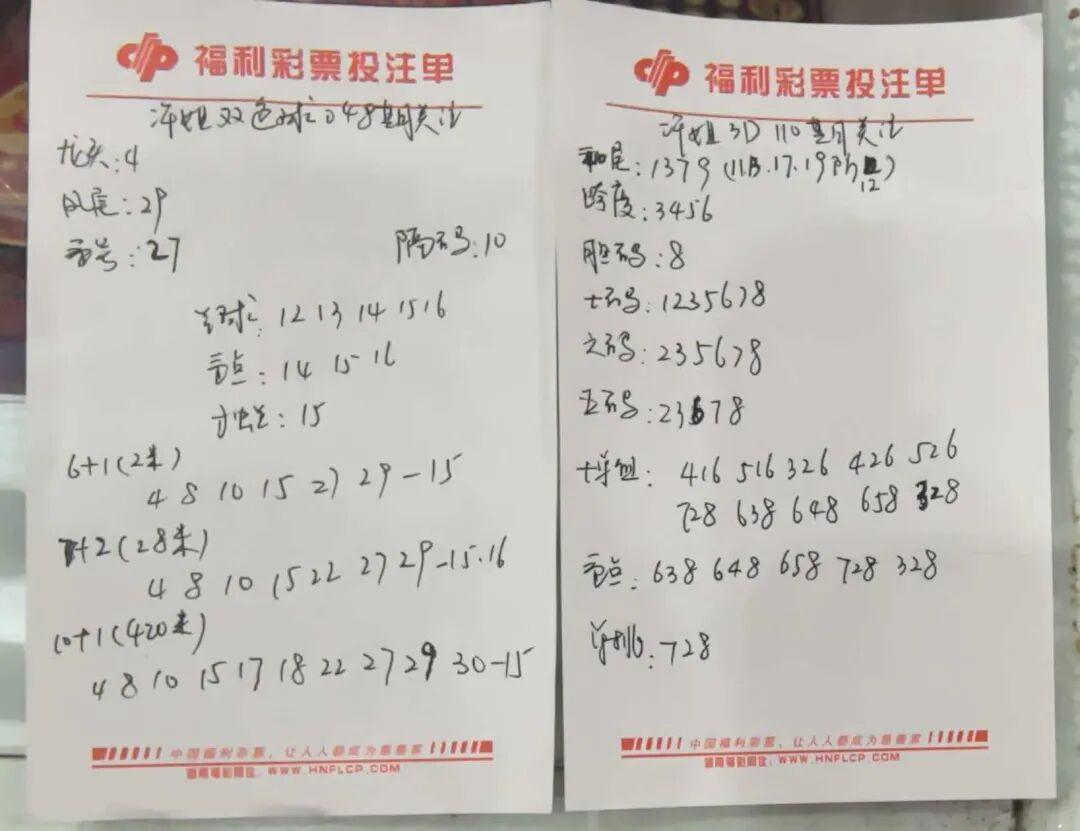 福利彩票投注单
许姐双色球048期关注
龙头:4
凤尾:29
重号:27 隔码:10
兰球:12 13 14 15 16
重点:14 15 16
独兰:15
6+1(2米)
4 8 10 15 27 29-15
7+2(28米)
4 8 10 15 22 27 29-15.16
10+1(420米)
4 8 10 15 17 18 22 27 29 30-15
中国福利彩票,让人人都成为慈善家
WWW.HNFLCP.COM
福利彩票投注单
许姐3D 110期关注
和尾:1379(11.13.17.19防12)
跨度:3456
胆码:8
七码:1235678
六码:235678
五码:23678
十单组:416 516 326 426 526
728 638 648 658 328
重点:638 648 658 728 328
单挑:728
中国福利彩票,让人人都成为慈善家
WWW.HNFLCP.COM